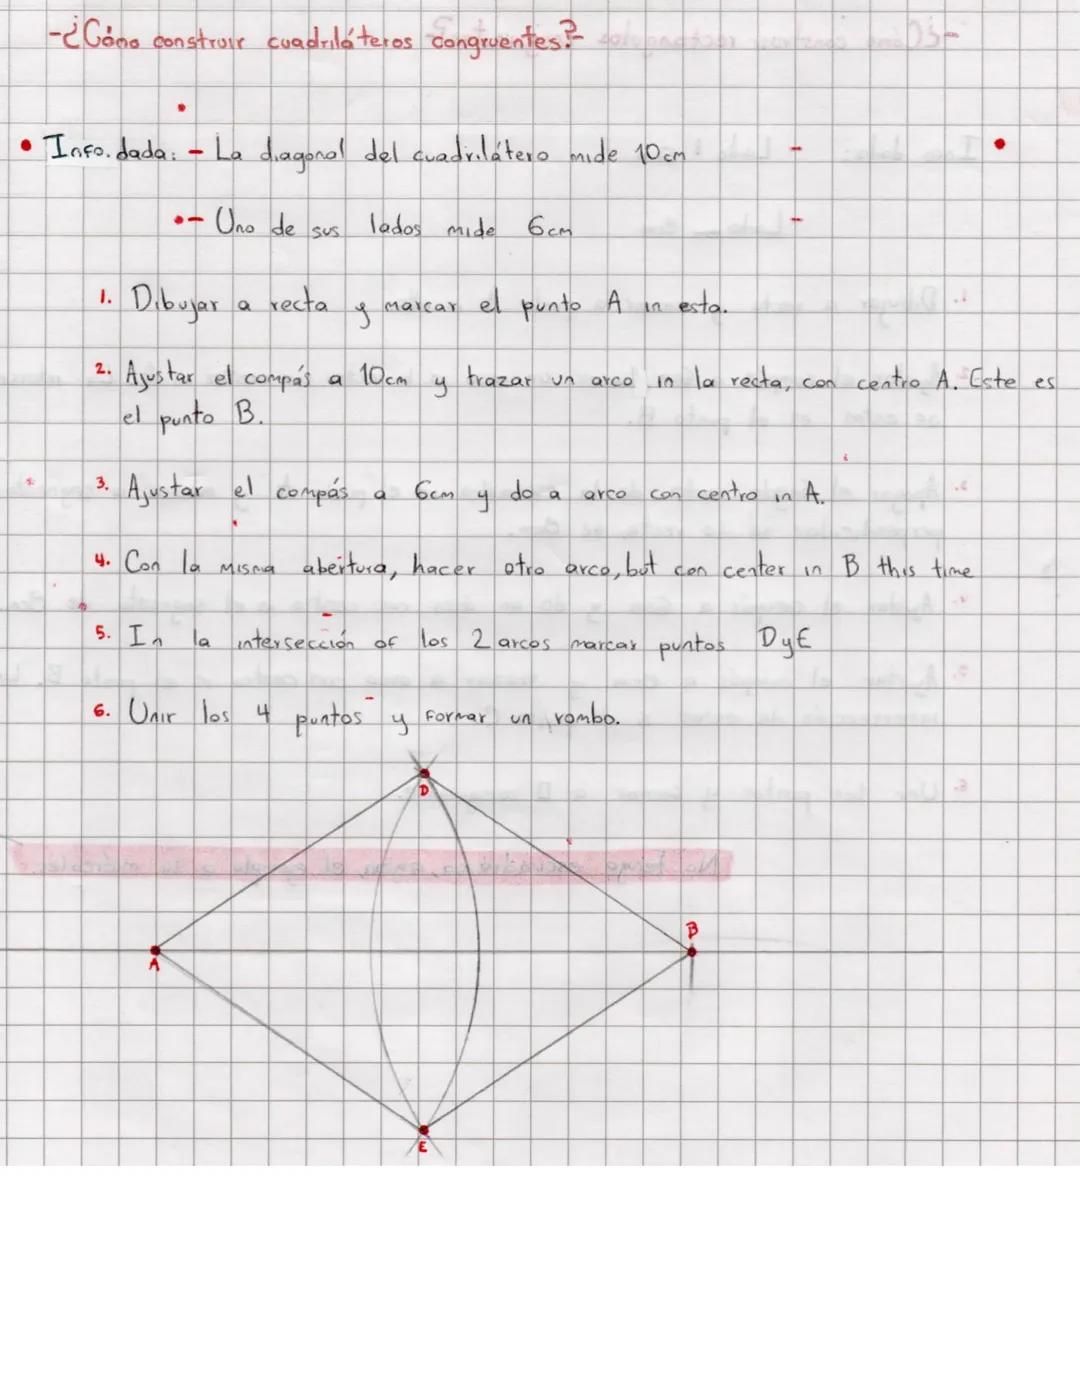 -¿Cómo construir cuadriláteros congruentes?-
• Info. dada: - La diagonal del cuadrilátero mide 10cm -
•- Uno de sus lados mide 6cm -
1. Dibujar a recta y marcar el punto A in esta.
2. Ajustar el compás a 10cm y trazar un arco in la recta, con centro A. Este es
el punto B.
3. Ajustar el compás a 6cm y do a arco con centro in A.
4. Con la misma abertura, hacer otro arco, but con center in B this time
5. In la intersección of los 2 arcos marcar puntos D y E
6. Unir los 4 puntos y formar un rombo.
D
B
A
E